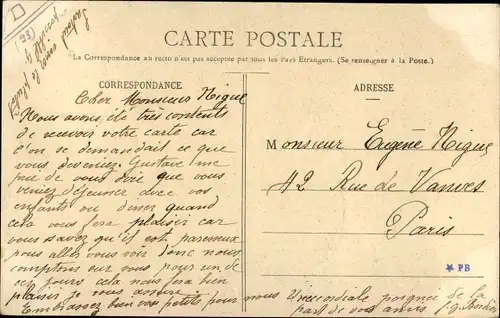 CARTE POSTALE
La Correspondance au recto n'est pas acceptée par tous les Pays Etrangers. (Se renseigner à la Poste.)
CORRESPONDANCE
Cher Monsieur Nigue
Nous avons été très contents
de recevoir votre carte car
l'on se demandait ce que
vous deveniez. Gustave me
prie de vous dire que vous
veniez déjeuner avec vos
enfants ou diner quand
cela vous fera plaisir car
vous savez qu'il est paresseux
pour aller vous voir donc nous
comptons sur vous pour un de
ces jours cela nous fera bien
plaisir je vous assure
Embrassez bien vos petits pour nous
Une cordiale poignée de la
part de vos amis
ADRESSE
Monsieur Eugène Nigue
42 Rue de Vanves
Paris
PB